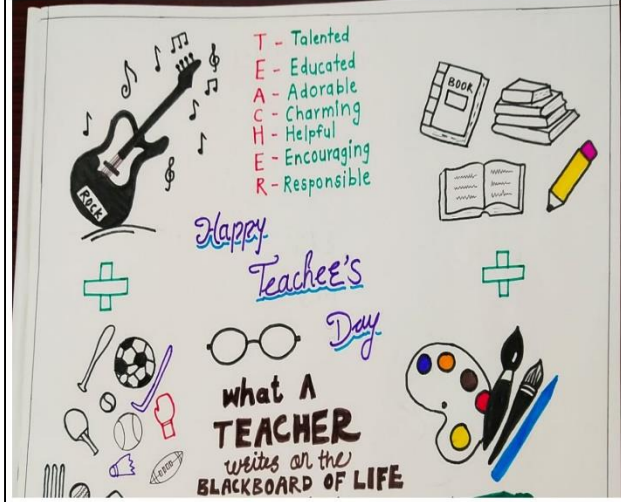 T - Talented
E - Educated
A - Adorable
C - Charming
H - Helpful
E - Encouraging
R - Responsible
BOOK
ROCK
Happy
TeacheE's
Day
what A
TEACHER
writes on the
BLACKBOARD OF LIFE